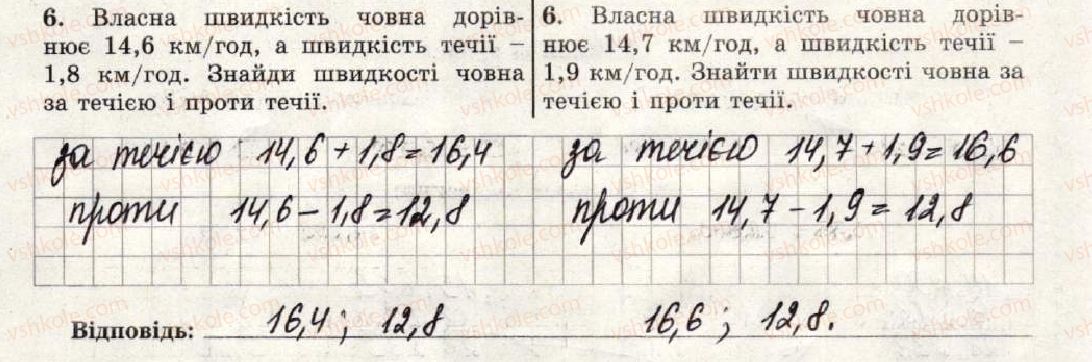 6. Власна швидкість човна дорів-
нює 14,6 км/год, а швидкість течії –
1,8 км/год. Знайди швидкості човна
за течією і проти течії.
6. Власна швидкість човна дорів-
нює 14,7 км/год, а швидкість течії –
1,9 км/год. Знайти швидкості човна за
течією і проти течії.
за течією 14,6 + 1,8 = 16,4
проти 14,6 – 1,8 = 12,8
за течією 14,7 + 1,9 = 16,6
проти 14,7 – 1,9 = 12,8
Відповідь: 16,4; 12,8 16,6; 12,8.